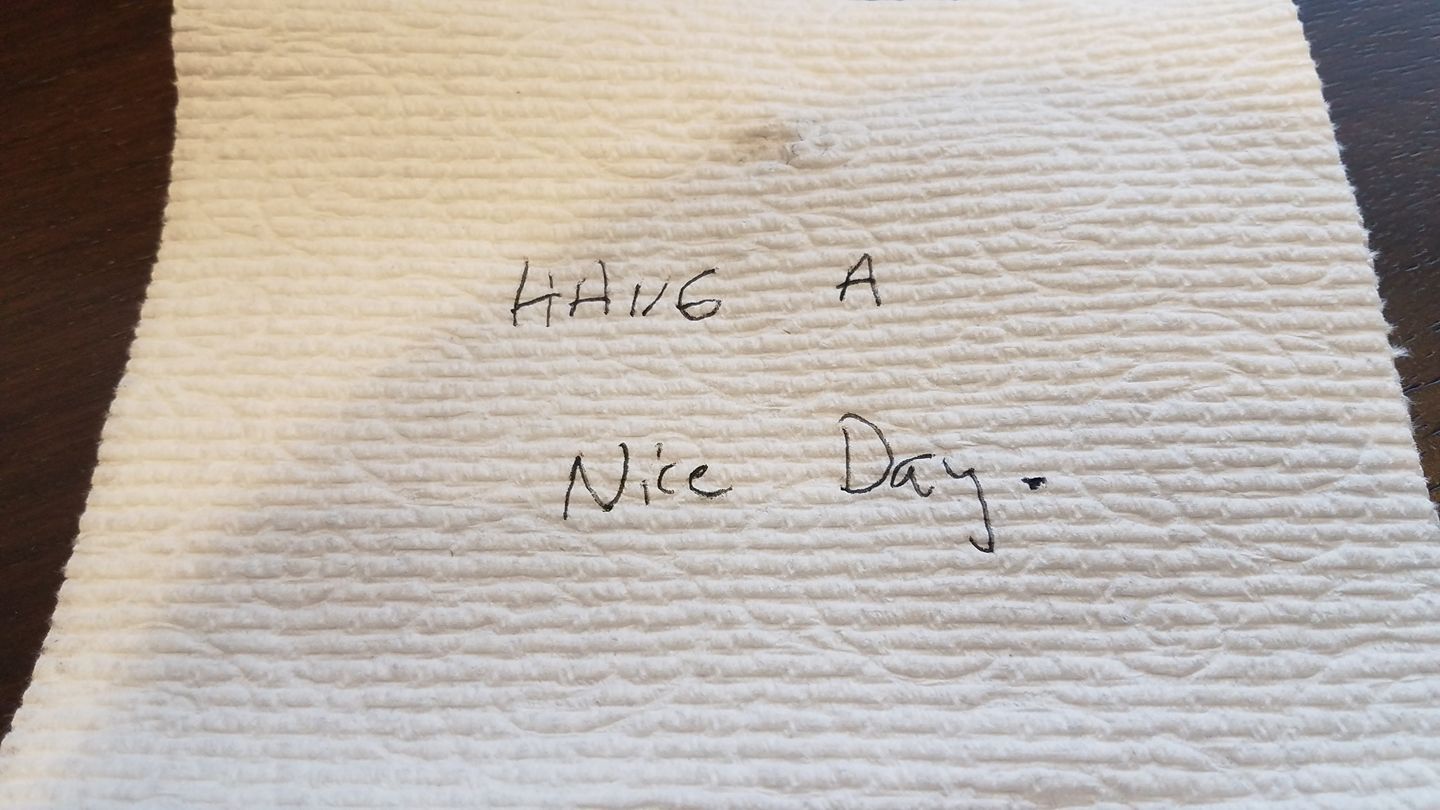 HAVE A
Nice Day.